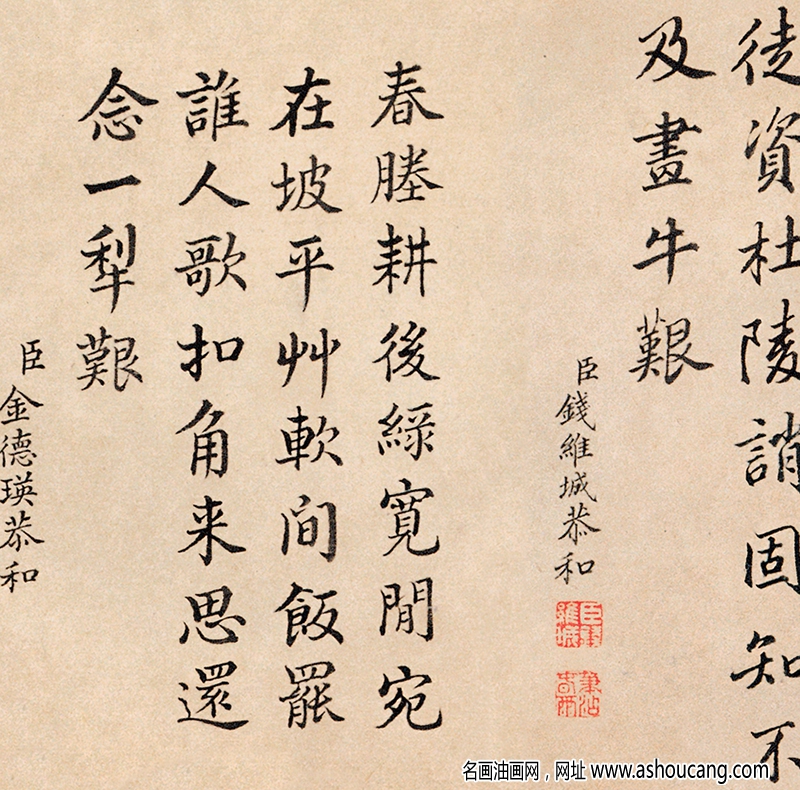 徒資杜陵誚固知不
及畫牛艱
臣錢維城恭和
筆沾春雨
春塍耕後綠寬閒宛
在坡平艸軟間飯罷
誰人歌扣角来思還
念一犁艱
臣金德瑛恭和
名画油画网，网址 www.ashoucang.com